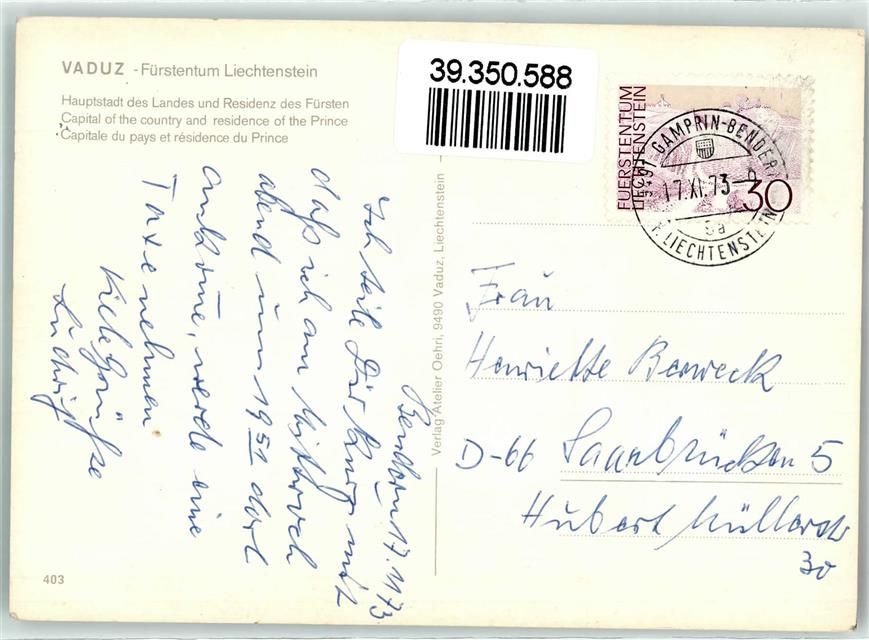 VADUZ - Fürstentum Liechtenstein
Hauptstadt des Landes und Residenz des Fürsten
Capital of the country and residence of the Prince
Capitale du pays et résidence du Prince
39.350.588
FUERSTENTUM
LIECHTENSTEIN
30
9491 GAMPRIN-BENDERN
17.XI.73-9
6a
F. LIECHTENSTEIN
Bendern 17.11.73
Ich teile Dir kurz mit
daß ich am Mittwoch
abend um 19 51 dort
ankome, werde eine
Taxe nehmen
Viele Grüße
Ludwig
Verlag Atelier Oehri, 9490 Vaduz, Liechtenstein
Frau
Henriette Berweck
D-66 Saarbrücken 5
Hubert Müllerstr
30
403